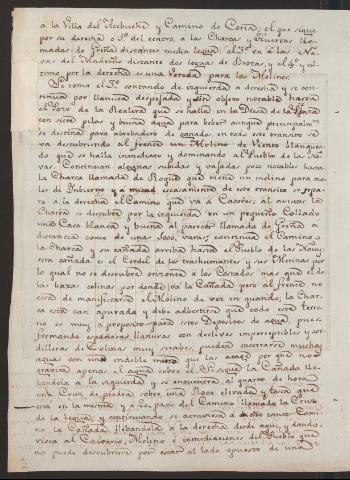 a la Villa del Acebuche y Camino de Coria, el que sigue
por su derecha o sea el centro, a las Charcas y
de Greña distantes media legua: el 3º va a las Na-
vas del Madroño distante dos leguas de Brozas, y el 4º y ul-
timo por la derecha es una Vereda para los Molinos.
Se toma el 3º contando de izquierda a derecha y se con-
tinua por llanura despejada y sin objeto notable hasta
el Pozo de la que se halla en la Dehesa de la
con siete pilas y buena agua para beber aunque principalmte
se destina para abrebadero de ganados: en todo este transito se
va descubriendo al frente un Molino de Viento blanquea-
do que se halla inmediato y dominando al Pueblo de las Na-
vas. Continuan algunas subidas y bajadas poco notables hasta
la Charca llamada de Roque que tiene un molino para mo-
ler de Imbierno y a mitad escasamente de este transito se sepa-
ra a la derecha el Camino que vá a Caceres; al avistar la
Charca se descubre por la izquierda en un pequeño Collado
una Casa blanca y buena al parecer llamada de Greña a
distancia como de unas 3000 varas; continua el Camino a
la Charca y su cañada arriba hasta el Pueblo de las Navas,
esta cañada es el Cordel de los trashumantes y sus Merinas por
lo qual no se descubre orizonte a los Costados mas que el de
las bajas colinas por donde va la Cañada pero al frente no
cesa de manifestarse el Molino de vez en quando; la Char-
ca está casi apurada y debe advertirse que todo este terre-
no es muy a proposito para estos Depositos de agua, pues
formando espaciosas llanuras con declives imperceptibles y cor-
dilleras de Colinas muy suabes, pueden encerrarse muchas
aguas con un endeble muro que las ataje por que no
gravita apenas el agua sobre el. Se sigue la Cañada lle-
bandola a la izquierda y se encuentra al quarto de hora
una Cruz de piedra sobre una Roca elevada y tosca que
está en la misma y a 200 pasos del Camino llamada la Cruz
de la Legua, y continuando se atraviesa a otro tanto Cami-
no la Cañada, llebandola a la derecha desde aqui, y dando
vista al Calvario, Molino é inmediaciones del Pueblo que
no puede descubrirse por estar al lado opuesto de una